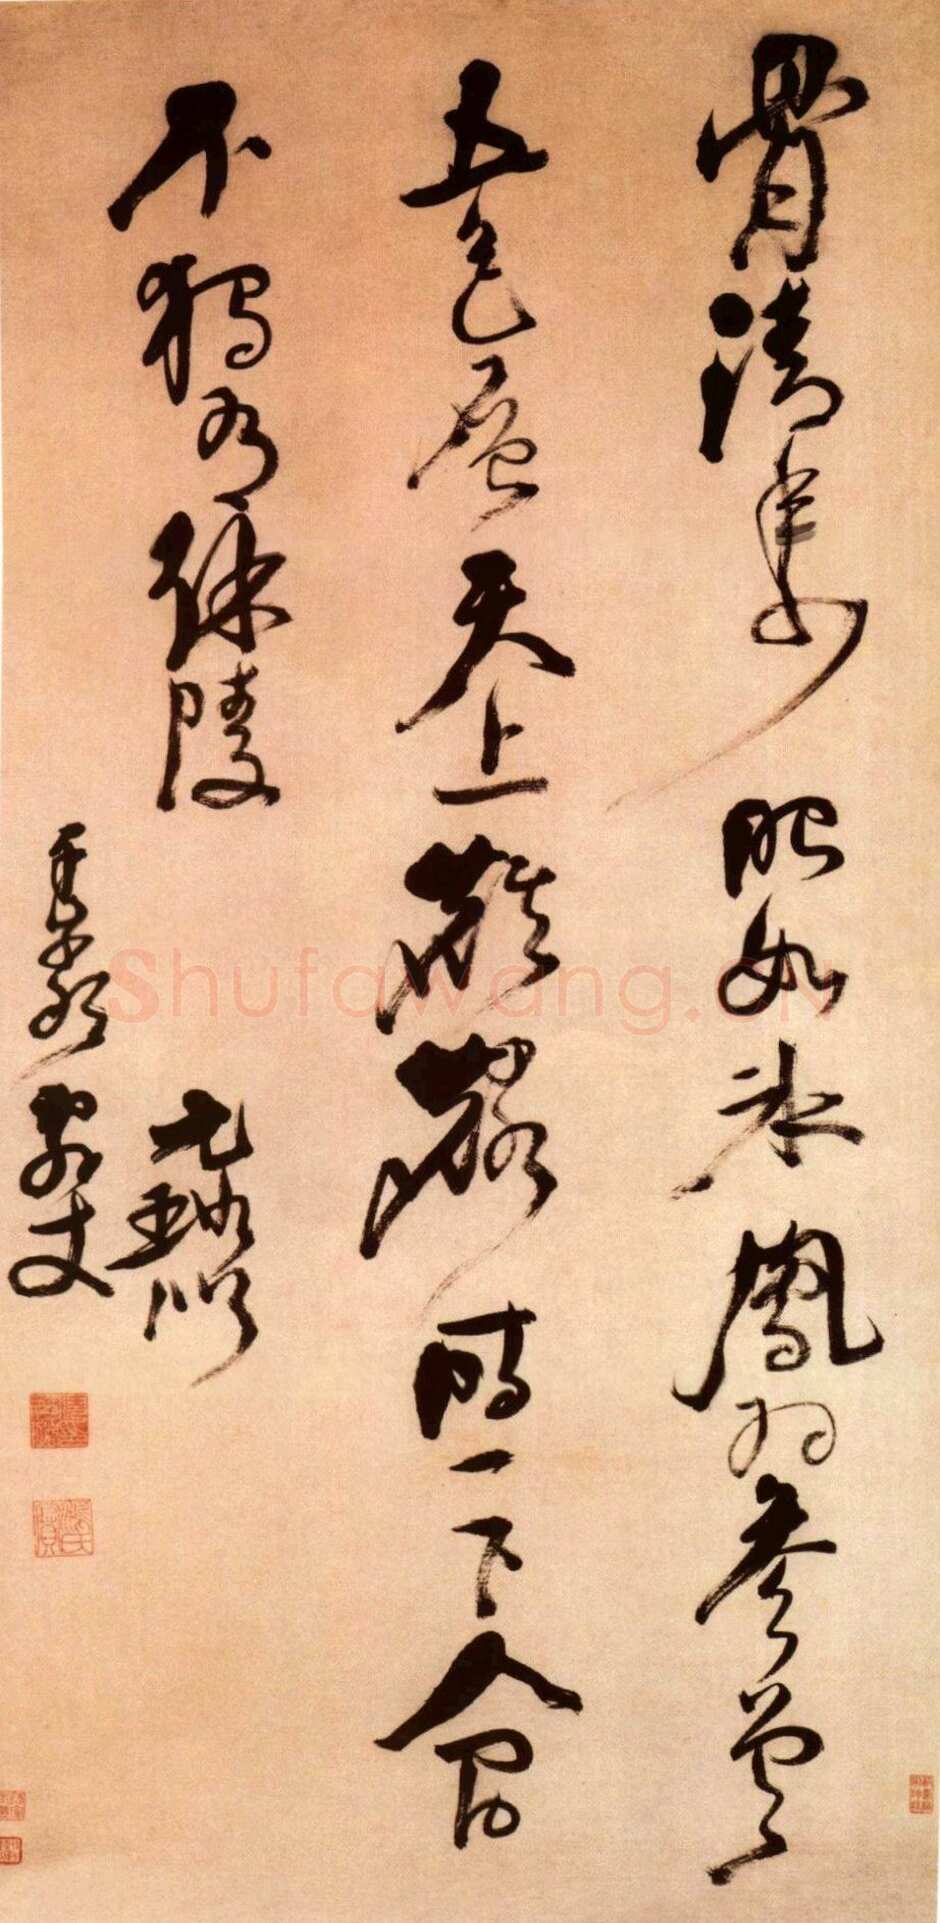 骨清年少眼如冰鳳羽參差
五色層天上麒麟時一下人間
不獨有徐陵
元璐似
丈
Shufawang.cn